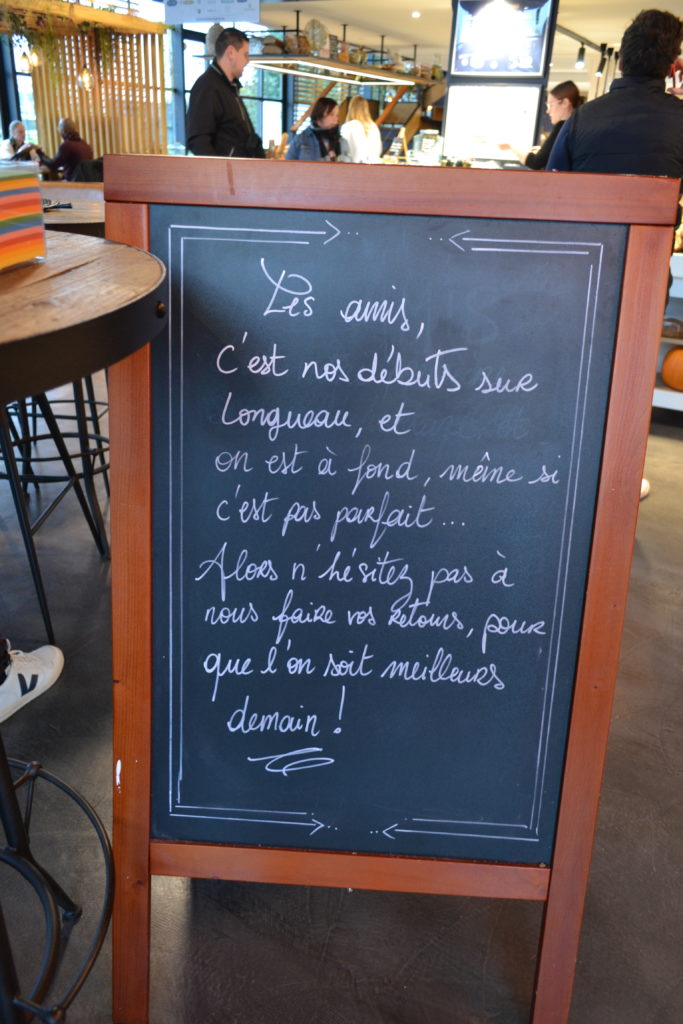 Les amis,
C'est nos débuts sur
Longueau, et
on est à fond, même si
c'est pas parfait...
Alors n'hésitez pas à
nous faire vos retours, pour
que l'on soit meilleurs
demain !
N